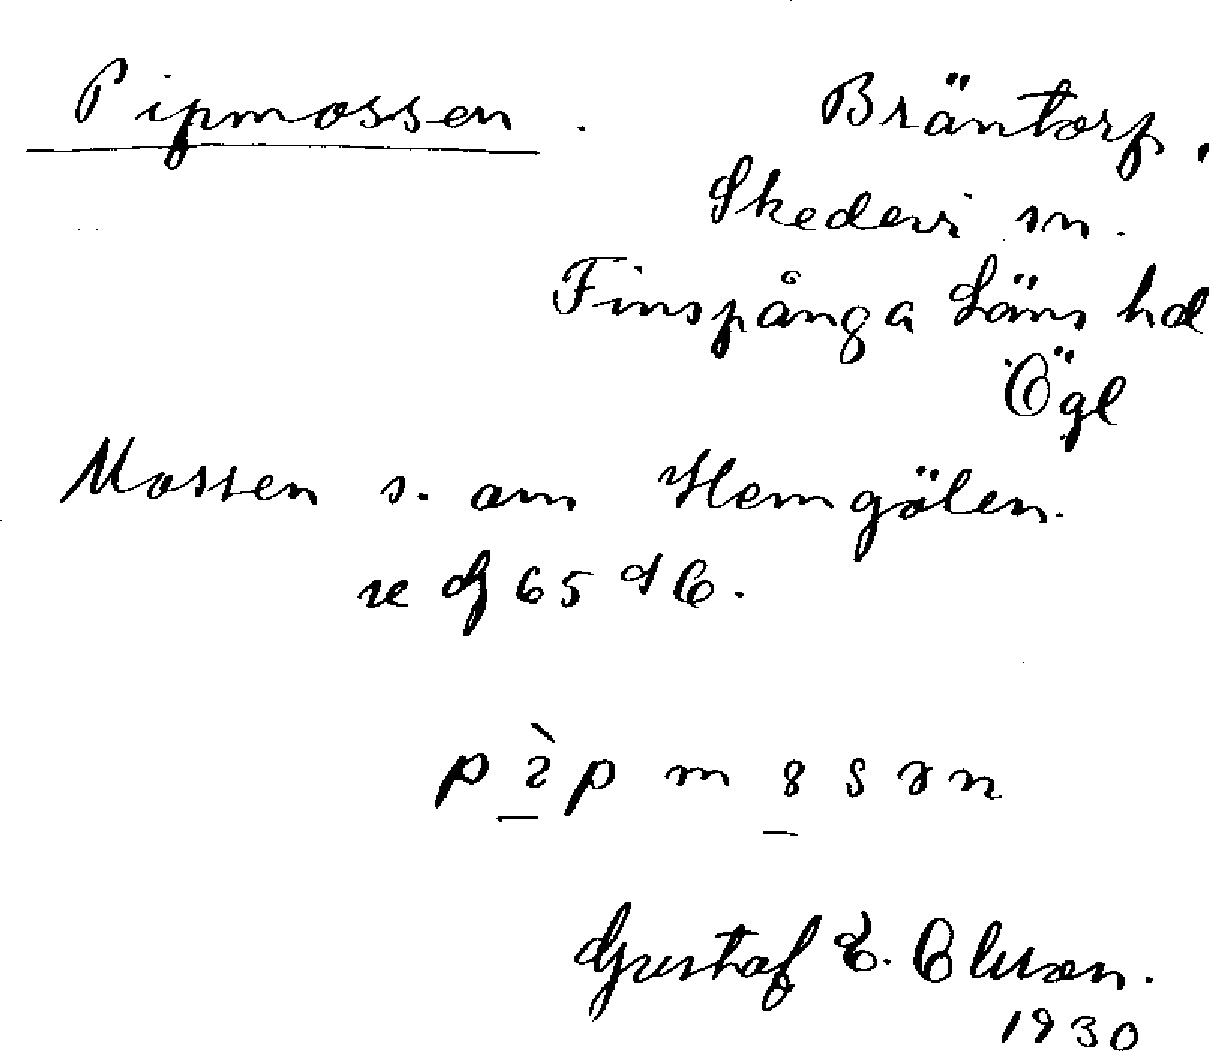 Pipmossen. Bräntorp,
Skedevi sn.
Finspånga Läns hd
Ögl
Mossen s. om Hemgölen.
65
Gustaf E. Olsson.
1930